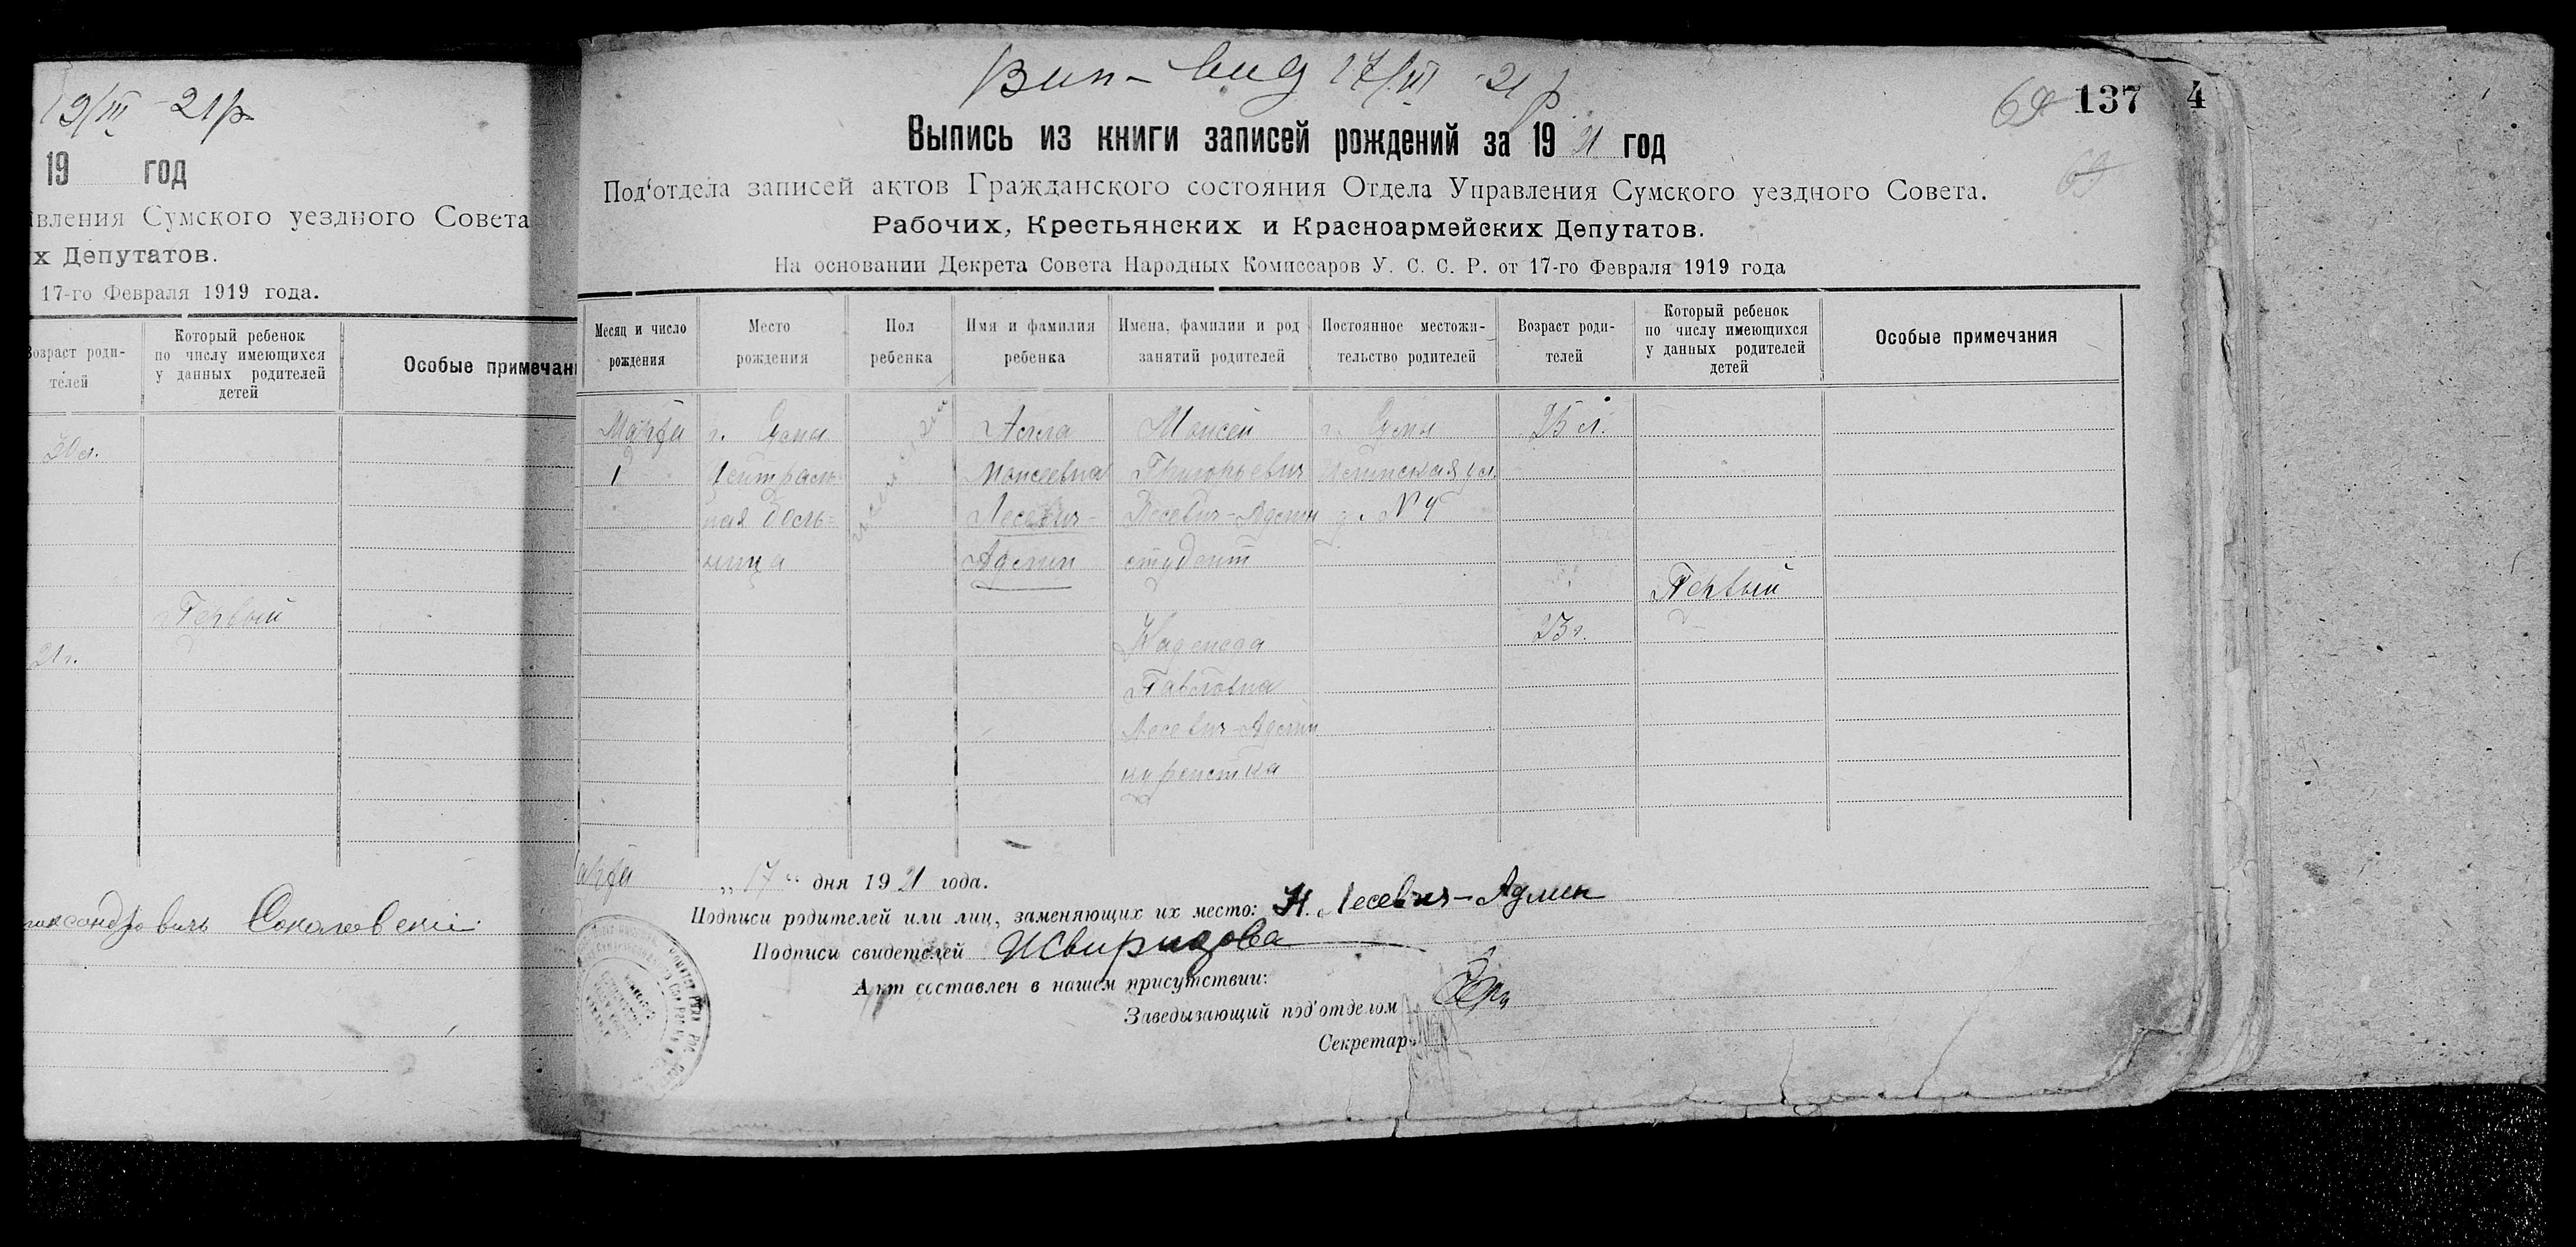 19/III 21р.
19 год
вления Сумского уездного Совета
х Депутатов.
17-го Февраля 1919 года.
Возраст роди-
телей
Который ребенок
по числу имеющихся
у данных родителей
детей
Особые примечан
30 л.
Первый
21 г.
лександровичъ
Вип- вид 17/III 21 р
137
4
69
Выпись из книги записей рождений за 1921 год
Под'отдела записей актов Гражданского состояния Отдела Управления Сумского уездного Совета.
Рабочих, Крестьянских и Красноармейских Депутатов.
На основании Декрета Совета Народных Комиссаров У. С. С. Р. от 17-го Февраля 1919 года
Месяц и число
рождения
Место
рождения
Пол
ребенка
Имя и фамилия
ребенка
Имена, фамилии и род
занятий родителей
Постоянное местожи-
тельство родителей
Возраст роди-
телей
Который ребенок
по числу имеющихся
у данных родителей
детей
Особые примечания
Марта
1
г. Сумы
Централь-
ная боль=
ница
Моисеевна
Лесевич-
Админ
Моисей
Григорьевич
Лесевич-Админ
студент
Надежда
Павловна
Лесевич-Админ
г. Сумы
ул.
д. №4
25 л.
23 г.
Первый
арта „17" дня 1921 года.
Подписи родителей или лиц, заменяющих их место: Н. Лесевич-Админ
Подписи свидетелей Свиридова
Акт составлен в нашем присутствии:
Заведызающий под'отделом
Секретарь